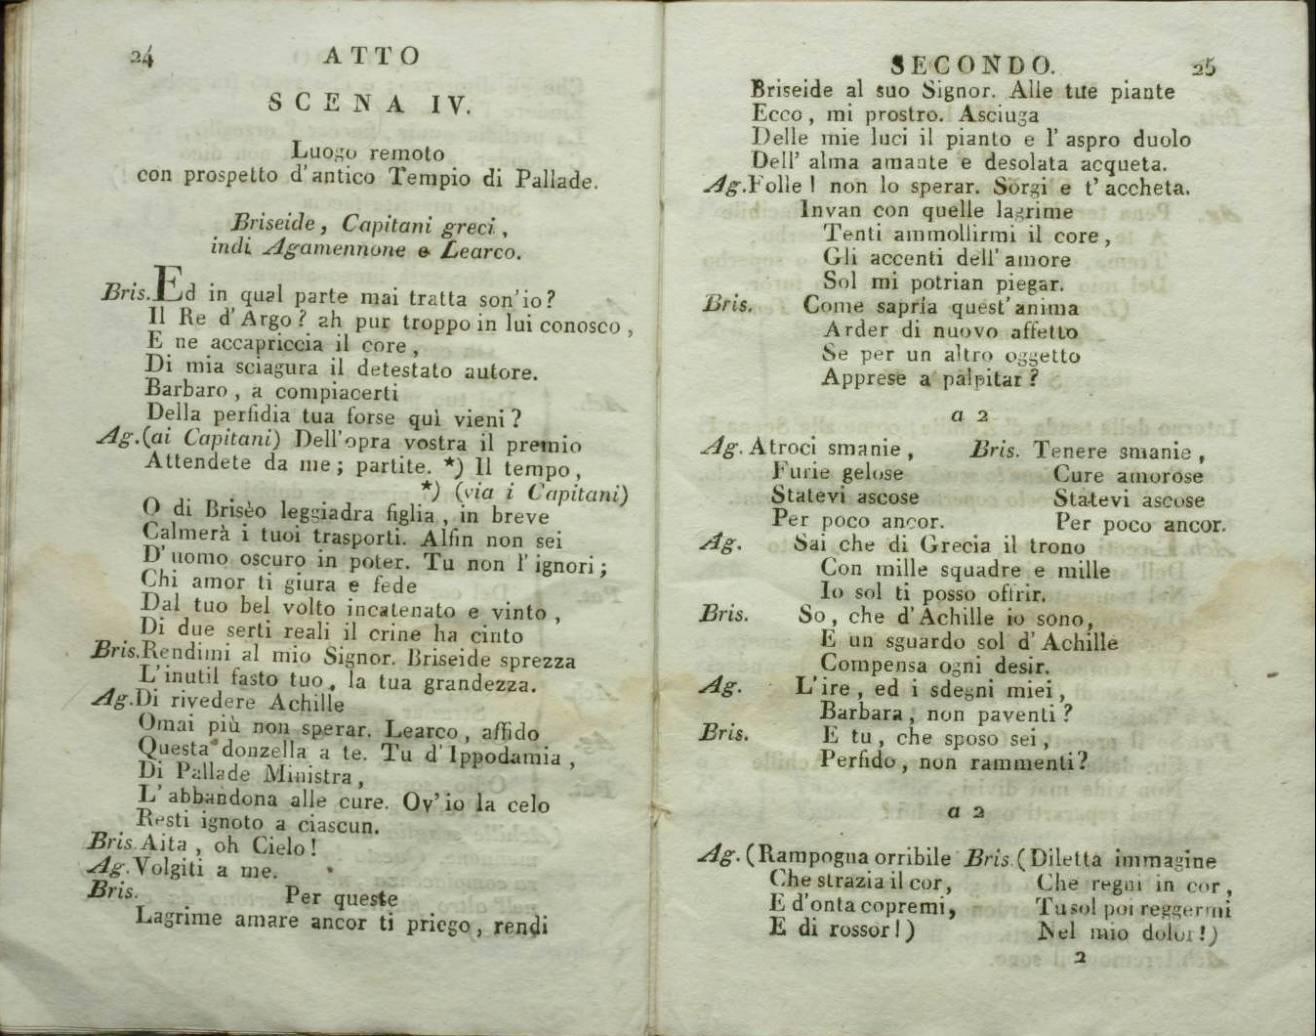 24 ATTO
SCENA IV.
Luogo remoto
con prospetto d'antico Tempio di Pallade.
Briseide, Capitani greci,
indi Agamennone e Learco.
Bris. Ed in qual parte mai tratta son'io?
Il Re d'Argo? ah pur troppo in lui conosco,
E ne accapriccia il core,
Di mia sciagura il detestato autore.
Barbaro, a compiacerti
Della perfidia tua forse quì vieni?
Ag. (ai Capitani) Dell'opra vostra il premio
Attendete da me; partite. *) Il tempo,
*) (via i Capitani)
O di Brisèo leggiadra figlia, in breve
Calmerà i tuoi trasporti. Alfin non sei
D'uomo oscuro in poter. Tu non l'ignori;
Chi amor ti giura e fede
Dal tuo bel volto incatenato e vinto,
Di due serti reali il crine ha cinto
Bris. Rendimi al mio Signor. Briseide sprezza
L'inutil fasto tuo, la tua grandezza.
Ag. Di rivedere Achille
Omai più non sperar. Learco, affido
Questa donzella a te. Tu d'Ippodamia,
Di Pallade Ministra,
L'abbandona alle cure. Ov'io la celo
Resti ignoto a ciascun.
Bris. Aita, oh Cielo!
Ag. Volgiti a me.
Bris. Per queste
Lagrime amare ancor ti priego, rendi
SECONDO. 25
Briseide al suo Signor. Alle tue piante
Ecco, mi prostro. Asciuga
Delle mie luci il pianto e l'aspro duolo
Dell'alma amante e desolata acqueta.
Ag. Folle! non lo sperar. Sorgi e t'accheta.
Invan con quelle lagrime
Tenti ammollirmi il core,
Gli accenti dell'amore
Sol mi potrian piegar.
Bris. Come sapria quest'anima
Arder di nuovo affetto
Se per un altro oggetto
Apprese a palpitar?
a 2
Ag. Atroci smanie, Bris. Tenere smanie,
Furie gelose Cure amorose
Statevi ascose Statevi ascose
Per poco ancor. Per poco ancor.
Ag. Sai che di Grecia il trono
Con mille squadre e mille
Io sol ti posso offrir.
Bris. So, che d'Achille io sono,
E un sguardo sol d'Achille
Compensa ogni desir.
Ag. L'ire, ed i sdegni miei,
Barbara, non paventi?
Bris. E tu, che sposo sei,
Perfido, non rammenti?
a 2
Ag. (Rampogna orribile Bris. (Diletta immagine
Che strazia il cor, Che regni in cor,
E d'onta copremi, Tu sol poi reggermi
E di rossor!) Nel mio dolor!)
2